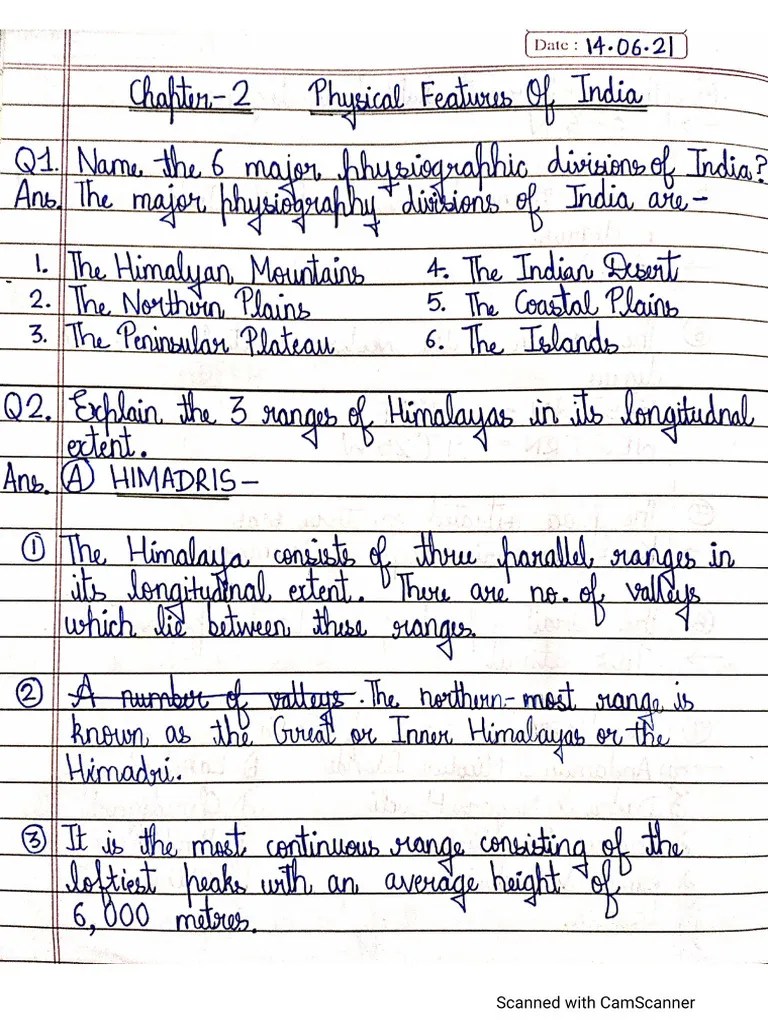 Date : 14.06.21
Chapter-2 Physical Features Of India
Q1. Name the 6 major physiographic divisions of India?
Ans. The major physiography divisions of India are-
1. The Himalyan Mountains 4. The Indian Desert
2. The Northern Plains 5. The Coastal Plains
3. The Peninsular Plateau 6. The Islands
Q2. Explain the 3 ranges of Himalayas in its longitudnal
extent.
Ans. Ⓐ HIMADRIS-
① The Himalaya consists of three parallel ranges in
its longitudinal extent. There are no. of valleys
which lie between these ranges.
② A number of valleys. The northern-most range is
known as the Great or Inner Himalayas or the
Himadri.
③ It is the most continuous range consisting of the
loftiest peaks with an average height of
6,000 metres.
Scanned with CamScanner